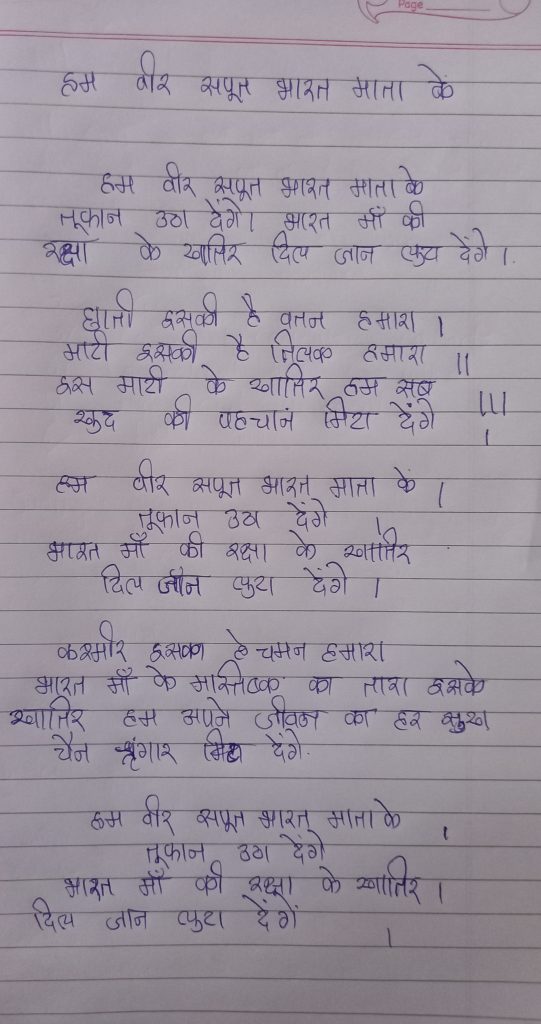 Page
हम वीर सपूत भारत माता के
हम वीर सपूत भारत माता के
तूफान उठा देंगे। भारत माँ की
रक्षा के खातिर दिल जान लुटा देंगे।
छाती इसकी है वतन हमारा।
माटी इसकी है तिलक हमारा ॥
इस माटी के खातिर हम सब
खुद की पहचान मिटा देंगे ।
हम वीर सपूत भारत माता के।
तूफान उठा देंगे ।
भारत माँ की रक्षा के खातिर
दिल जॉन लुटा देंगे ।
कश्मीर इसका है चमन हमारा
भारत माँ के मस्तिष्क का तारा इसके
खातिर हम अपने जीवन का हर सुख
चैन श्रृंगार मिटा देंगे.
हम वीर सपूत भारत माता के ।
तूफान उठा देंगे
भारत माँ की रक्षा के खातिर ।
दिल जान लुटा देंगें ।